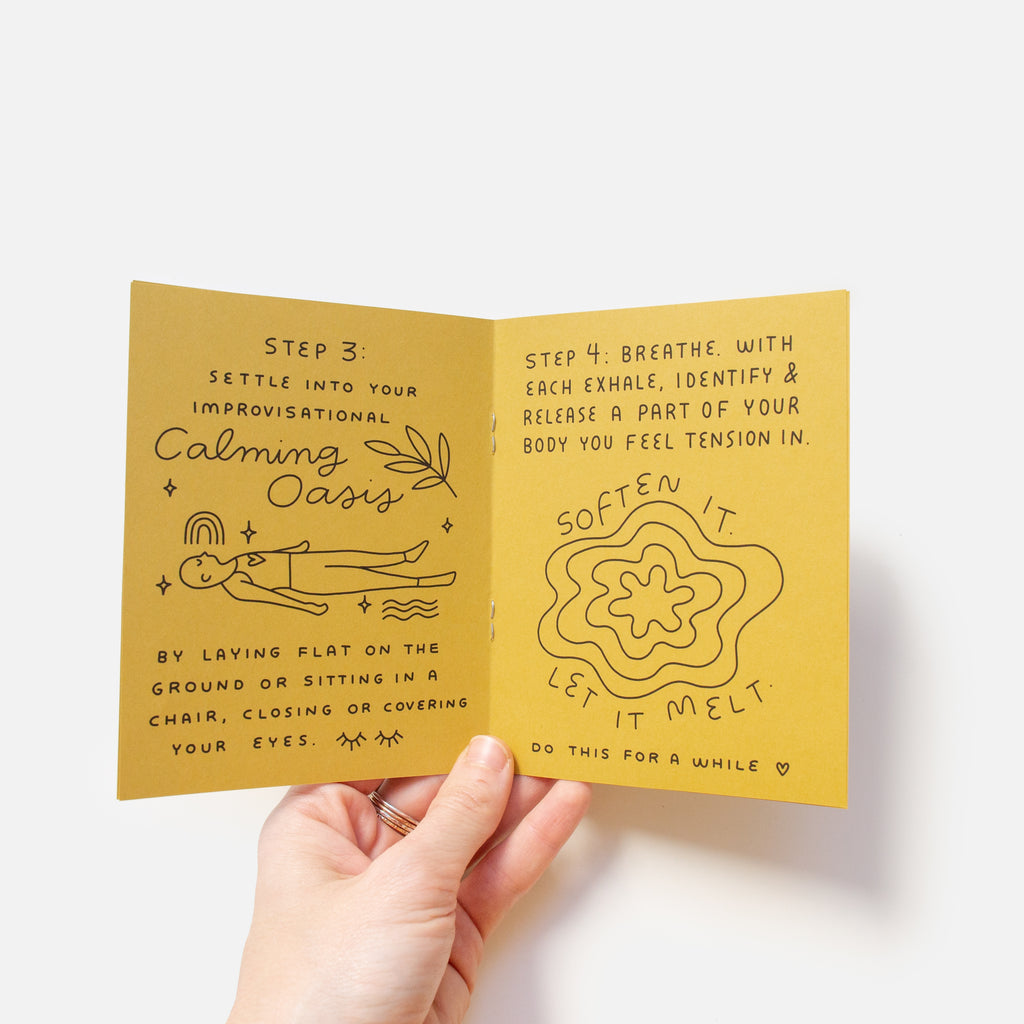 STEP 3:
SETTLE INTO YOUR
IMPROVISATIONAL
Calming
Oasis
BY LAYING FLAT ON THE
GROUND OR SITTING IN A
CHAIR, CLOSING OR COVERING
YOUR EYES.
STEP 4: BREATHE. WITH
EACH EXHALE, IDENTIFY &
RELEASE A PART OF YOUR
BODY YOU FEEL TENSION IN.
SOFTEN IT.
LET IT MELT.
DO THIS FOR A WHILE ♡